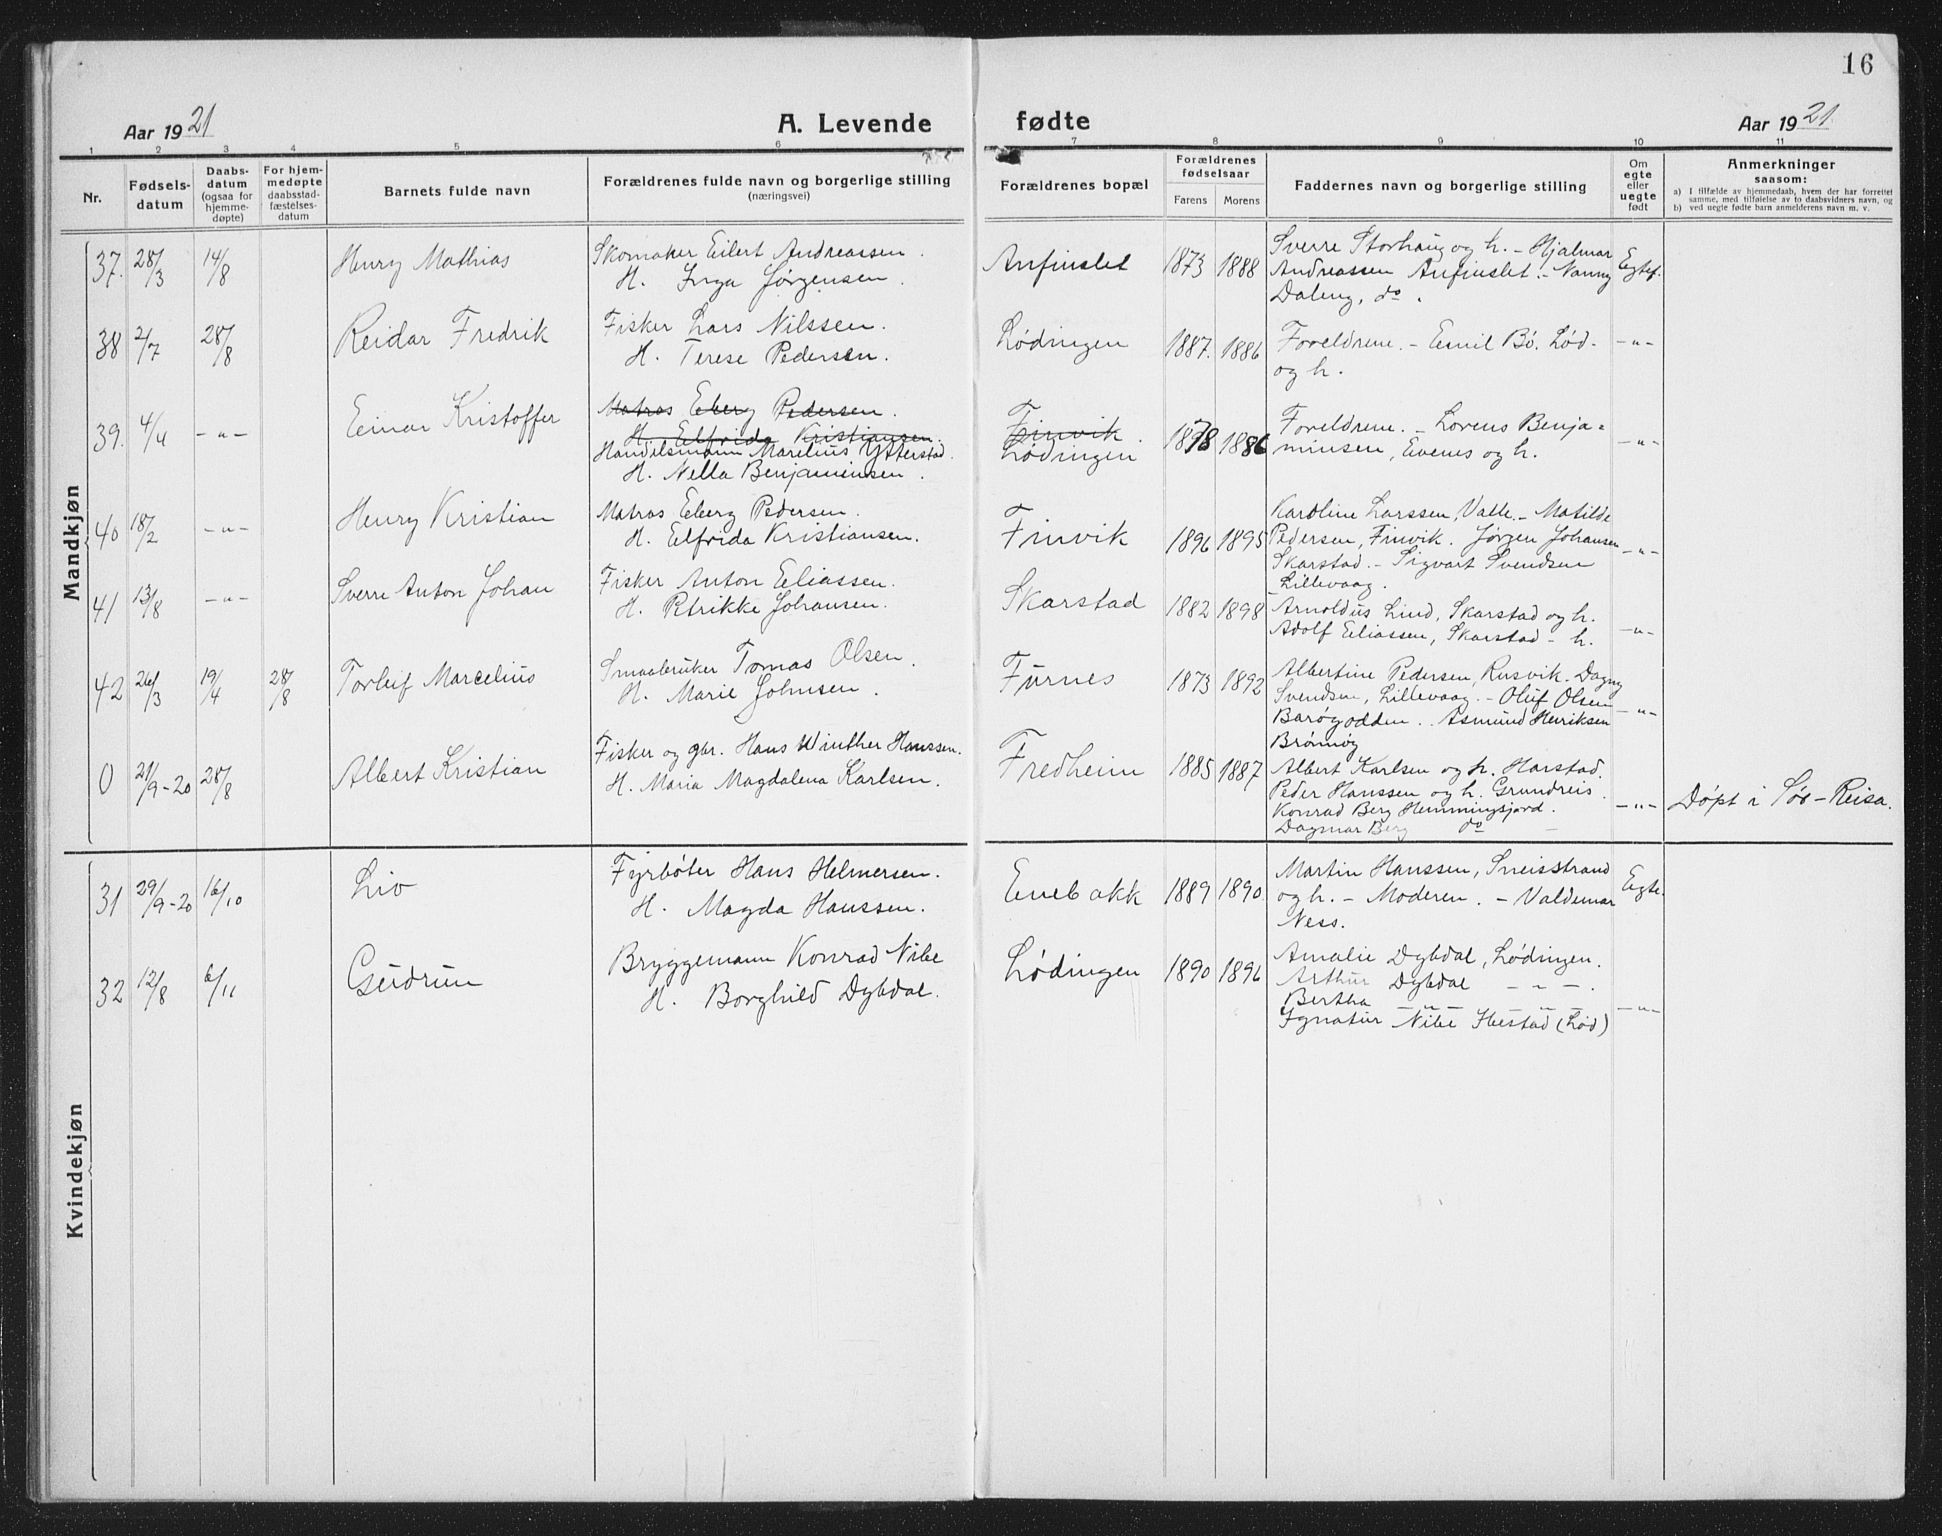 16
Aar 1921 A. Levende fødte Aar 1921
1 2 3 4 5 6 7 8 9 10 11
Nr.
Fødsels-
datum
Daabs-
datum
(ogsaa for
hjemme-
døpte)
For hjem-
medøpte
daabsstad-
fæstelses-
datum
Barnets fulde navn
Forældrenes fulde navn og borgerlige stilling
(næringsvei)
Forældrenes bopæl
Forældrenes
fødselsaar
Farens Morens
Faddernes navn og borgerlige stilling
Om
egte
eller
uegte
født
Anmerkninger
saasom:
a) I tilfælde av hjemmedaab, hvem der har forrettet
samme, med tilføielse av to daabsvidners navn, og
b) ved uegte fødte barn anmelderens navn m. v.
Mandkjøn
37. 28/3 14/8 Henry Mathias
Skomaker Eilert Andreassen.
H. Inga Jørgensen.
Anfinslet 1873 1888
Sverre Storhaug og h. - Hjalmar
Andreassen Anfinslet. - Nanny
Daleng, do.
Egtef.
38 2/7 28/8 Reidar Fredrik
Fisker Lars Nilssen.
H. Terese Pedersen.
Lødingen 1887. 1886
Foreldrene. - Emil Bö. Lød-
og h.
-"-
39. 4/4 -"- Einar Kristoffer
Matros Eberg Pedersen.
H. Elfrida Kristiansen.
Handelsmann Marelius Ytterstad.
H. Nella Benjaminsen.
Finvik.
Lødingen
1878 1886
Foreldrene. - Lorens Benja=
minsen, Evenes og h.
-"-
40 18/2 -"- Henry Kristian
Matros Eberg Pedersen.
H. Elfrida Kristiansen.
Finvik 1896 1895
Karoline Larssen, Valle. - Matilde
Pedersen, Finvik. Jørgen Johansen
Skarstad. - Sigvart Svendsen
Lillevaag.
-"-
41 13/8 -"- Sverre Anton Johan
Fisker Anton Eliassen.
H. Petrikke Johansen.
Skarstad 1882 1898
Arnoldus Lind, Skarstad og h.
Adolf Eliassen, Skarstad - h.
-"-
42 26/3 19/4 28/8 Torleif Marcelius
Smaabruker Tomas Olsen.
H. Marie Johnsen.
Furnes 1873 1892
Albertine Pedersen, Rusvik. Dagny
Svendsen, Lillevaag. - Oluf Olsen
Barøyodden. Asmund Henriksen
Brönnöy
-"-
0 21/9-20 28/8 Albert Kristian
Fisker og gbr. Hans Winther Hanssen.
H. Maria Magdalena Karlsen.
Fredheim 1885 1887
Albert Karlsen og h. Harstad.
Peder Hanssen og h. Grundreis.
Konrad Berg Hemmingsjord.
Dagmar Berg do -
-"-
Døpt i Sør-Reisa.
Kvindekjøn
31 29/9-20 16/10 Liv
Fyrbøter Hans Helmersen.
H. Magda Hanssen.
Enebakk 1889 1890
Martin Hanssen, Sneisstrand
og h. - Moderen. - Valdemar
Ness.
Egte.
32 12/8 6/11 Gudrun
Bryggemann Konrad Nibe
H. Borghild Dybdal.
Lødingen 1890 1896
Amalie Dybdal, Lødingen.
Arthur Dybdal - " -.
Bertha -"- -"-
Ignatur Nibe Ibestad (Lød)
-"-